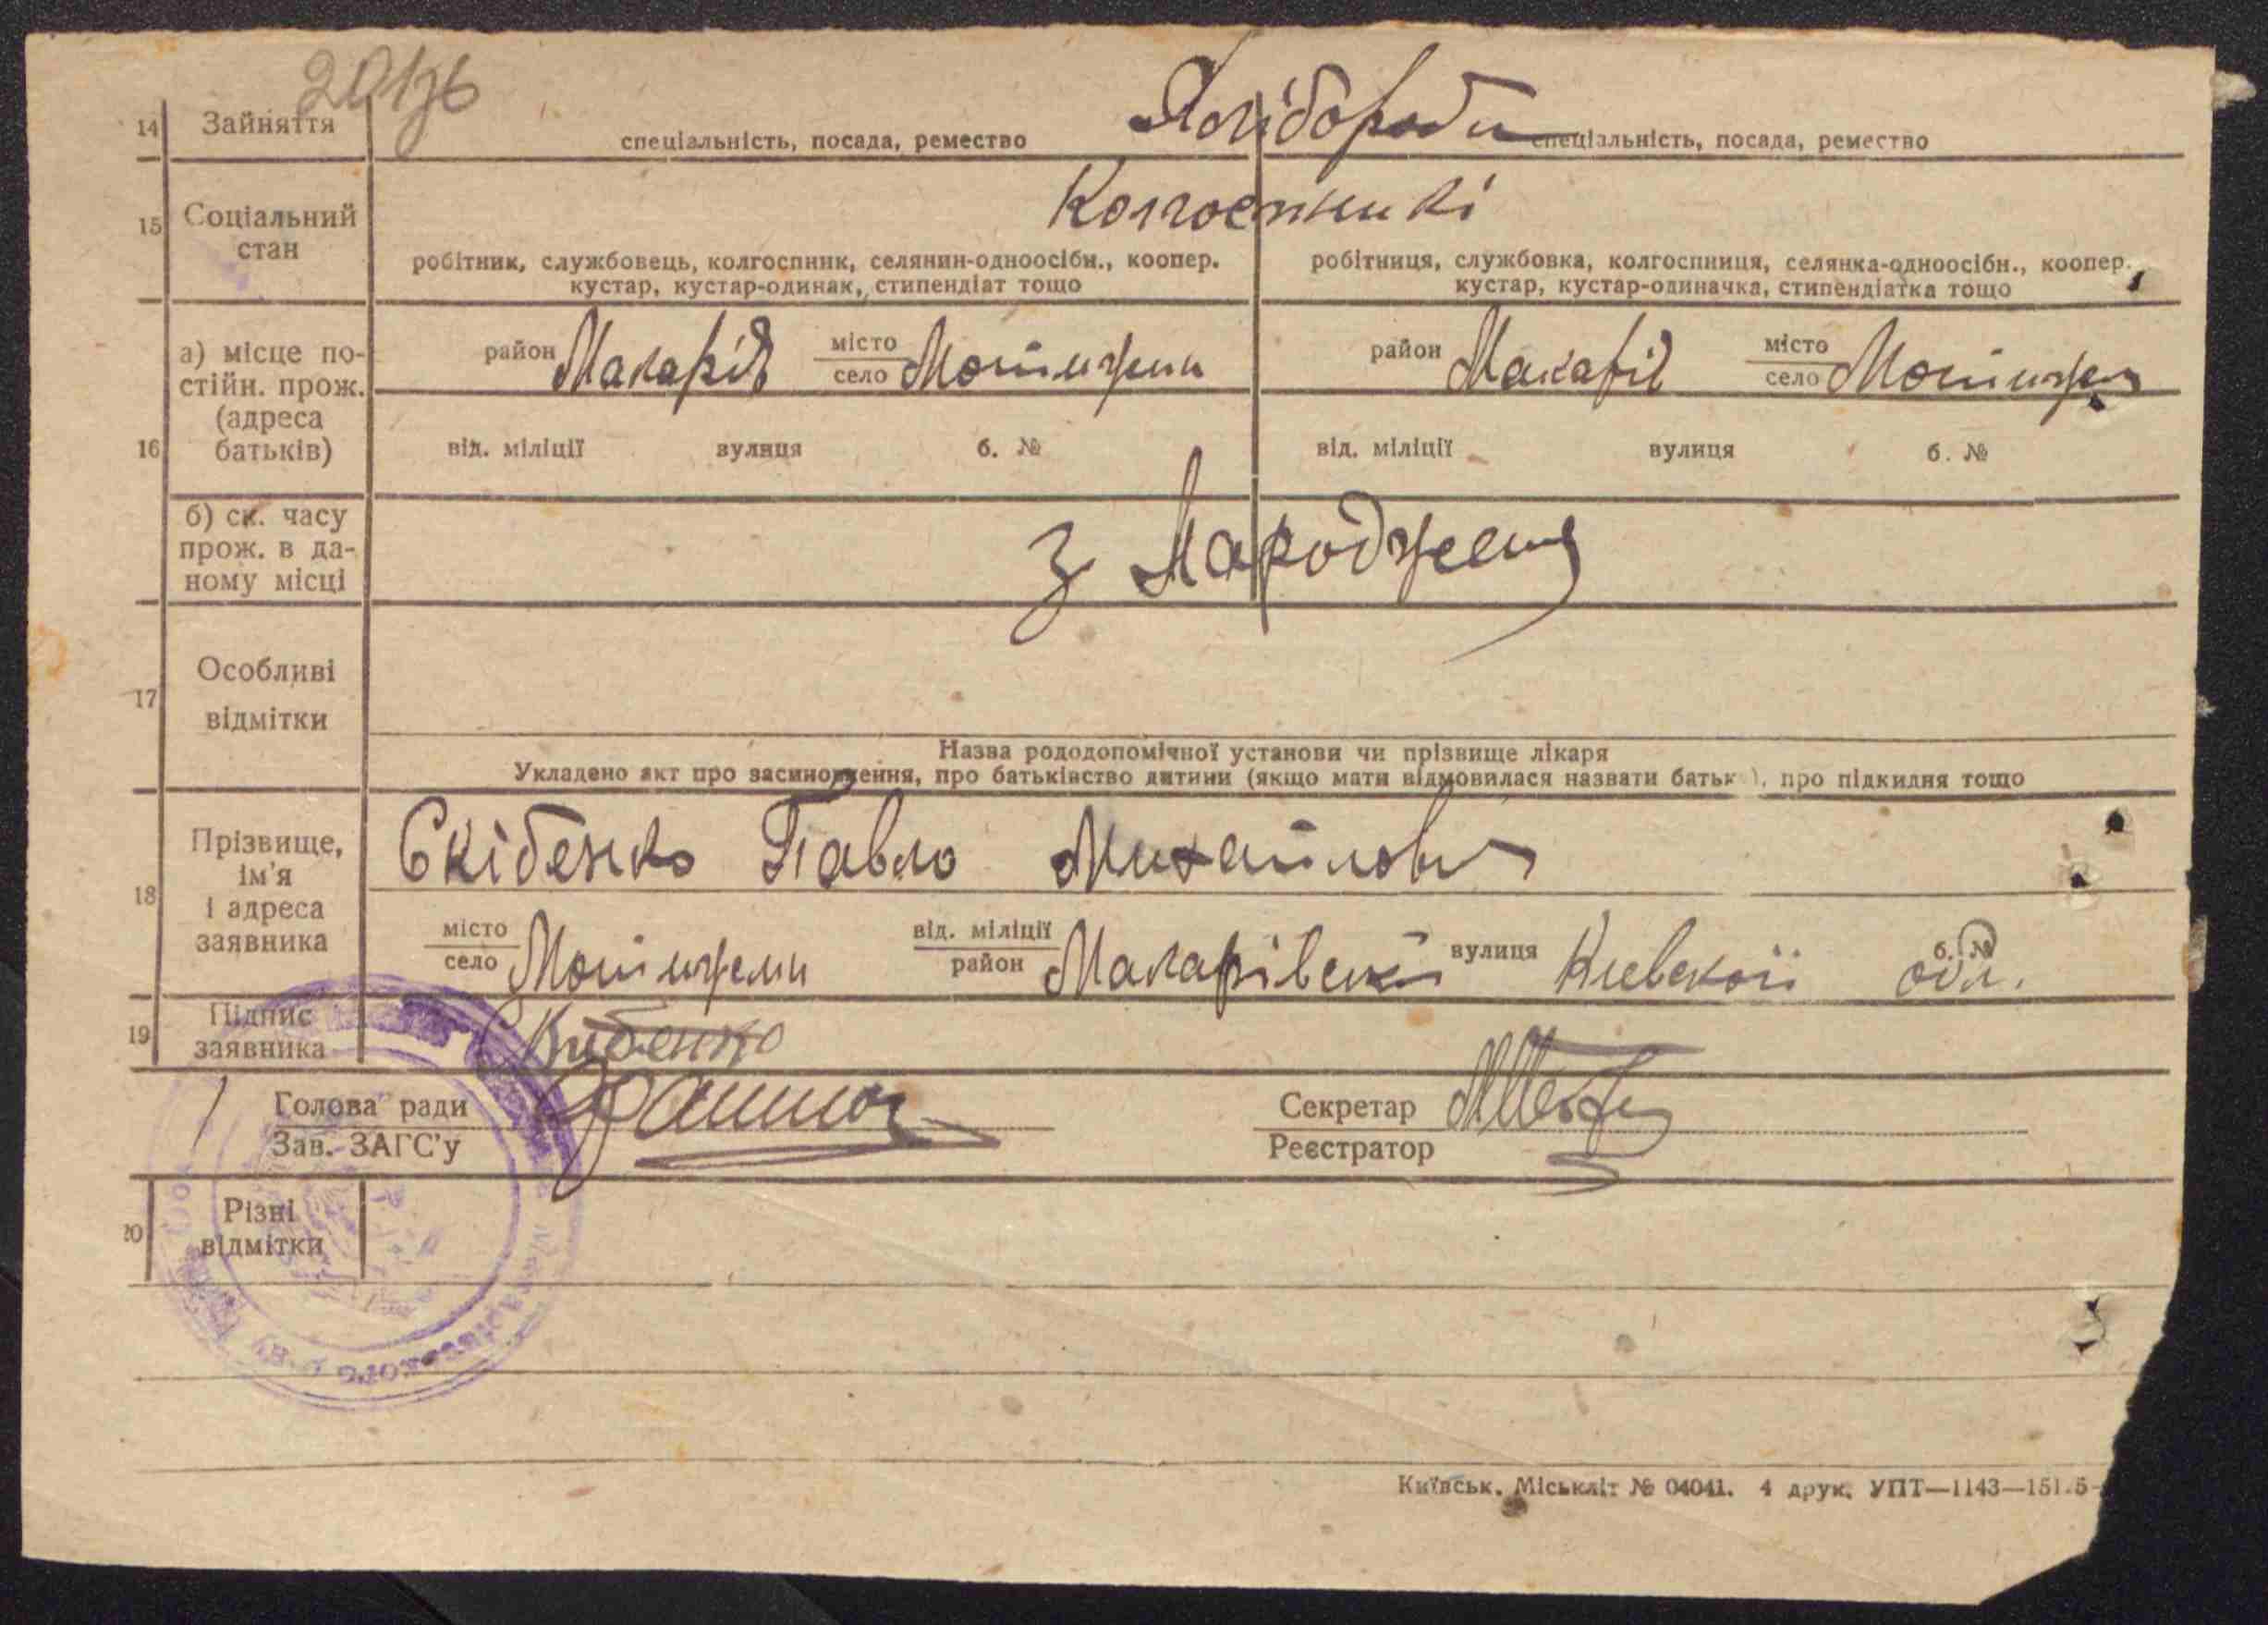 14 Зайняття спеціальність, посада, ремество Хлібороби спеціальність, посада, ремество
15 Соціальний стан
Колгоспники
робітник, службовець, колгоспник, селянин-одноосібн., коопер. робітниця, службовка, колгоспниця, селянка-одноосібн., коопер.
кустар, кустар-одинак, стипендіат тощо кустар, кустар-одиначка, стипендіатка тощо
16 а) місце постійн. прож. (адреса батьків)
район Макарів місто село Мотижин район Макарів місто село Мотижин
від. міліції вулиця б. № від. міліції вулиця б. №
б) ск. часу прож. в даному місці
З Народження
17 Особливі відмітки
Назва рододопомічної установи чи прізвище лікаря
Укладено акт про засиновлення, про батьківство дитини (якщо мати відмовилася назвати батька), про підкидня тощо
18 Прізвище, ім'я і адреса заявника
Скібенко Павло Михайлович
місто село від. міліції район Макарівськ вулиця Киевскої б. № обл.
19 Підпис заявника
Голова ради Секретар
Зав. ЗАГС'у Реєстратор
20 Різні відмітки
Київськ. Міськліт № 04041. 4 друк. УПТ—1143—151.5-